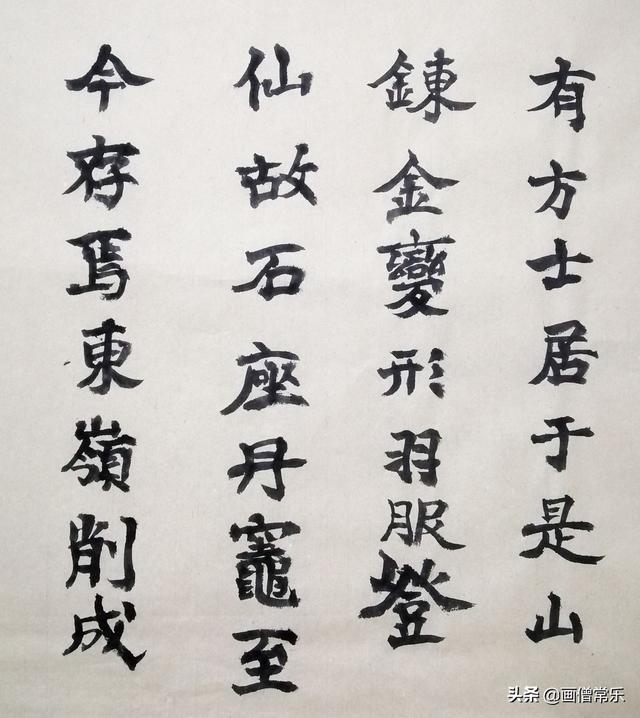 有方士居于是山
錬金變形羽服登
仙故石座丹竈至
今存焉東嶺削成
头条 @画僧常乐